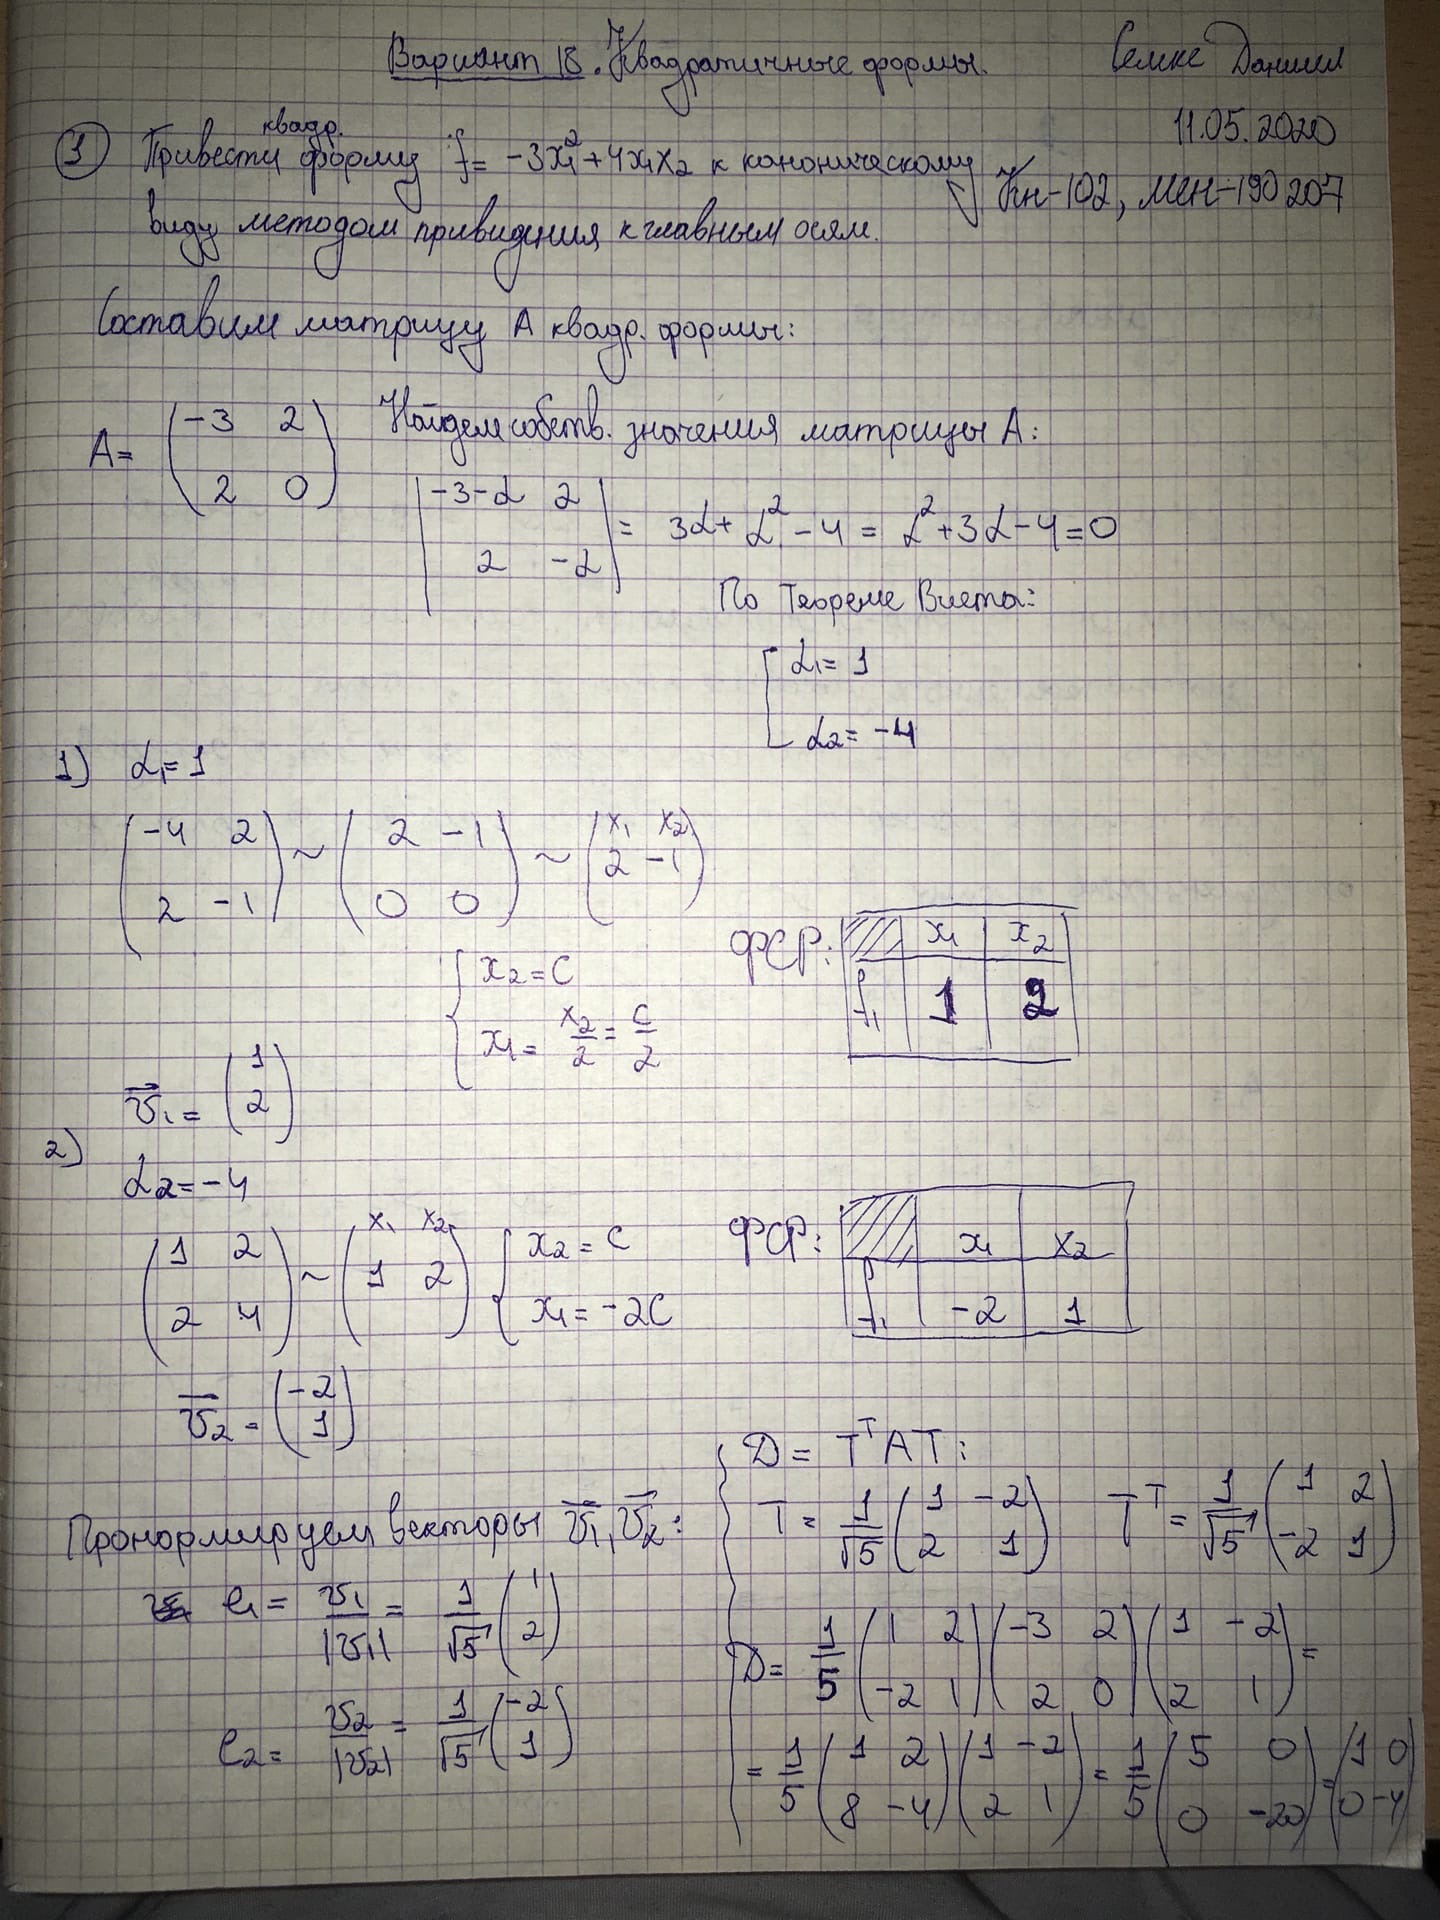 Вариант 18. Квадратичные формы.
Семке Даниил
11.05.2020
Кн-102, мен-190207
① Привести квадр. форму f = -3x₁² + 4x₁x₂ к каноническому
виду методом привидения к главным осям.
Составим матрицу А квадр. формы:
A = (-3 2; 2 0) Найдем собств. значения матрицы А:
|-3-α 2; 2 -α| = 3α + α² - 4 = α² + 3α - 4 = 0
По Теореме Виета:
[α₁ = 1
α₂ = -4
1) α₁ = 1
(-4 2; 2 -1) ~ (2 -1; 0 0) ~ (x₁ x₂; 2 -1)
{x₂ = C
x₁ = x₂/2 = C/2
ФСР: x₁ x₂
f₁ 1 2
v₁ = (1; 2)
2)
α₂ = -4
(1 2; 2 4) ~ (x₁ x₂; 1 2) {x₂ = C
x₁ = -2C
ФСР: x₁ x₂
f₁ -2 1
v₂ = (-2; 1)
Пронормируем векторы v₁, v₂:
e₁ = v₁/|v₁| = 1/√5 (1; 2)
e₂ = v₂/|v₂| = 1/√5 (-2; 1)
D = TᵀAT:
T = 1/√5 (1 -2; 2 1) Tᵀ = 1/√5 (1 2; -2 1)
D = 1/5 (1 2; -2 1)(-3 2; 2 0)(1 -2; 2 1) =
= 1/5 (1 2; 8 -4)(1 -2; 2 1) = 1/5 (5 0; 0 -20) = (1 0; 0 -4)